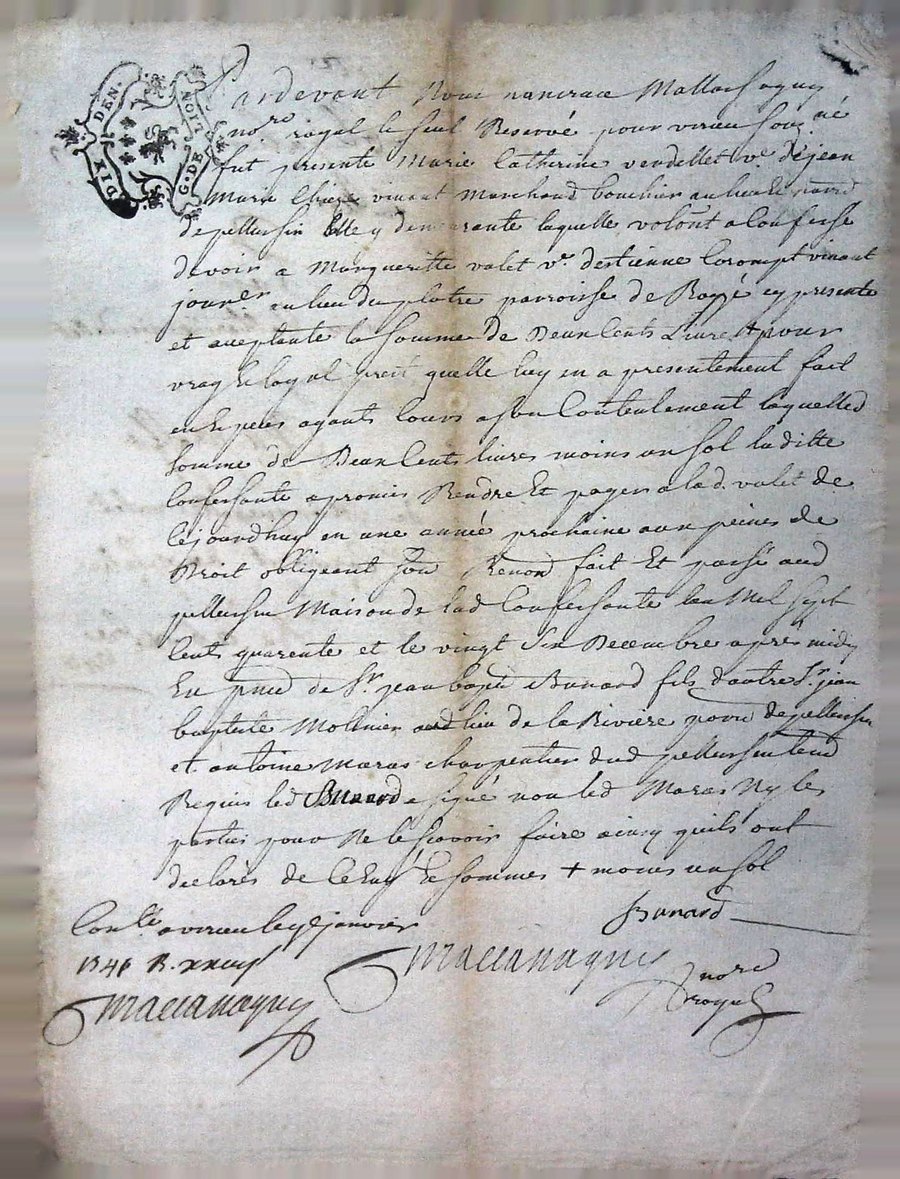 DIX DEN. G. DE NOIT
Pardevant Nous
no.re royal le seul Reservé pour virieu soug.né
fut presente Marie Catherine vendellet v.e de jean
Marie vivant Marchand bouchier au lieu et parr.
de pellussin Elle y demeurante laquelle volont a Confessé
devoir a Margueritte valet v.e destienne Corompt vivant
jour.er au lieu du platre parroisse de cy presente
et aceptante la somme de Deux Cents Livres + pour
vray et loyal prest quelle luy en a presentement fait
en Especes ayants Cours a son Contentement laquelled
somme de Deux Cents livres moins un sol laditte
Confessante a promis Rendre Et payer a lad. valet de
Cejourdhuy en une année prochaine aux peines de
Droit obligeant Renond fait Et passé aud
pellussin Maison de lad Confessante lan Mil sept
Cents quarente et le vingt six Decembre après midy
En pnce de Sr jean bapte Bunard fils dautre Sr jean
baptiste lieu de la Riviere parr de pellussin
et antoine Maras charpentier dud pellussin temd
Requis led Bunard a signé non led Maras Ny les
parties pour Ne le sçavoir faire ainsy quils ont
declarés de Ce Enq et sommés + moins un sol
Bunard
Con.lé a virieu le janvier
1741 R.
nore
royal